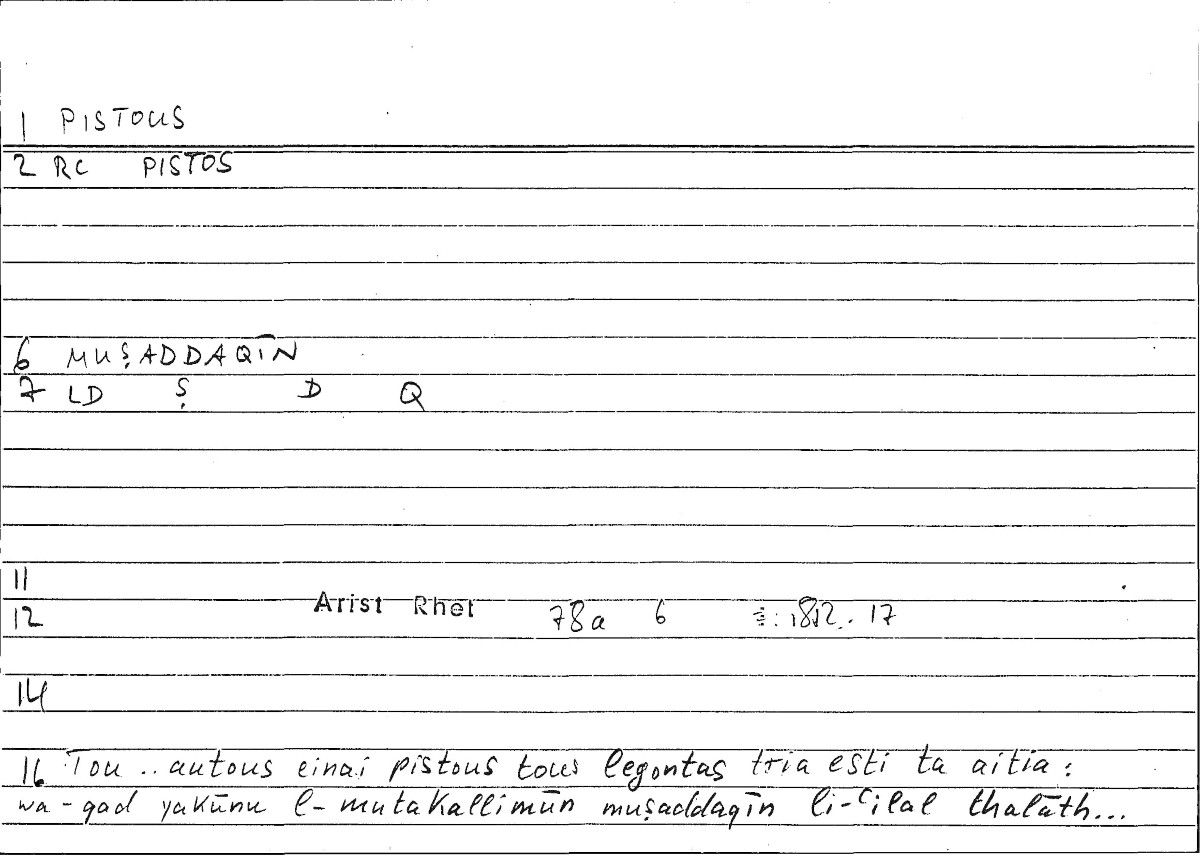 1 PISTOUS
2 RC PISTOS
6 MUṢADDAQĪN
7 LD Ṣ D Q
11
12 Arist Rhet 78a 6 17
14
16 Tou .. autous einai pistous tous legontas tria esti ta aitia :
wa-qad yakūnu l-mutakallimūn muṣaddaqīn li-ʿilal thalāth...